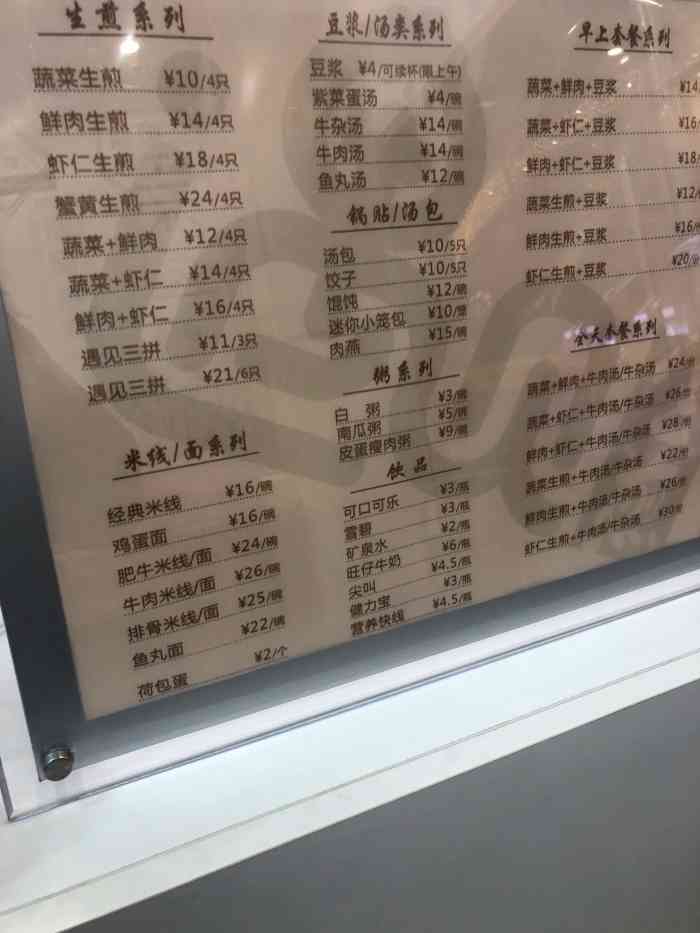 生煎系列
蔬菜生煎 ¥10/4只
鲜肉生煎 ¥14/4只
虾仁生煎 ¥18/4只
蟹黄生煎 ¥24/4只
蔬菜+鲜肉 ¥12/4只
蔬菜+虾仁 ¥14/4只
鲜肉+虾仁 ¥16/4只
遇见三拼 ¥11/3只
遇见三拼 ¥21/6只
米线/面系列
经典米线 ¥16/碗
鸡蛋面 ¥16/碗
肥牛米线/面 ¥24/碗
牛肉米线/面 ¥26/碗
排骨米线/面 ¥25/碗
鱼丸面 ¥22/碗
荷包蛋 ¥2/个
豆浆/汤类系列
豆浆 ¥4/可续杯(限上午)
紫菜蛋汤 ¥4/碗
牛杂汤 ¥14/碗
牛肉汤 ¥14/碗
鱼丸汤 ¥12/碗
锅贴/汤包
汤包 ¥10/5只
饺子 ¥10/5只
馄饨 ¥12/碗
迷你小笼包 ¥10/笼
肉燕 ¥15/碗
粥系列
白粥 ¥3/碗
南瓜粥 ¥5/碗
皮蛋瘦肉粥 ¥9/碗
饮品
可口可乐 ¥3/瓶
雪碧 ¥3/瓶
矿泉水 ¥2/瓶
旺仔牛奶 ¥6/瓶
尖叫 ¥4.5/瓶
健力宝 ¥3/瓶
营养快线 ¥4.5/瓶
早上套餐系列
蔬菜+鲜肉+豆浆 ¥14
蔬菜+虾仁+豆浆 ¥16/
鲜肉+虾仁+豆浆 ¥18/
蔬菜生煎+豆浆 ¥12/
鲜肉生煎+豆浆 ¥16/
虾仁生煎+豆浆 ¥20/
全天套餐系列
蔬菜+鲜肉+牛肉汤/牛杂汤 ¥24/份
蔬菜+虾仁+牛肉汤/牛杂汤 ¥26/份
鲜肉+虾仁+牛肉汤/牛杂汤 ¥28/份
蔬菜生煎+牛肉汤/牛杂汤 ¥22/份
鲜肉生煎+牛肉汤/牛杂汤 ¥26/份
虾仁生煎+牛肉汤/牛杂汤 ¥30/份